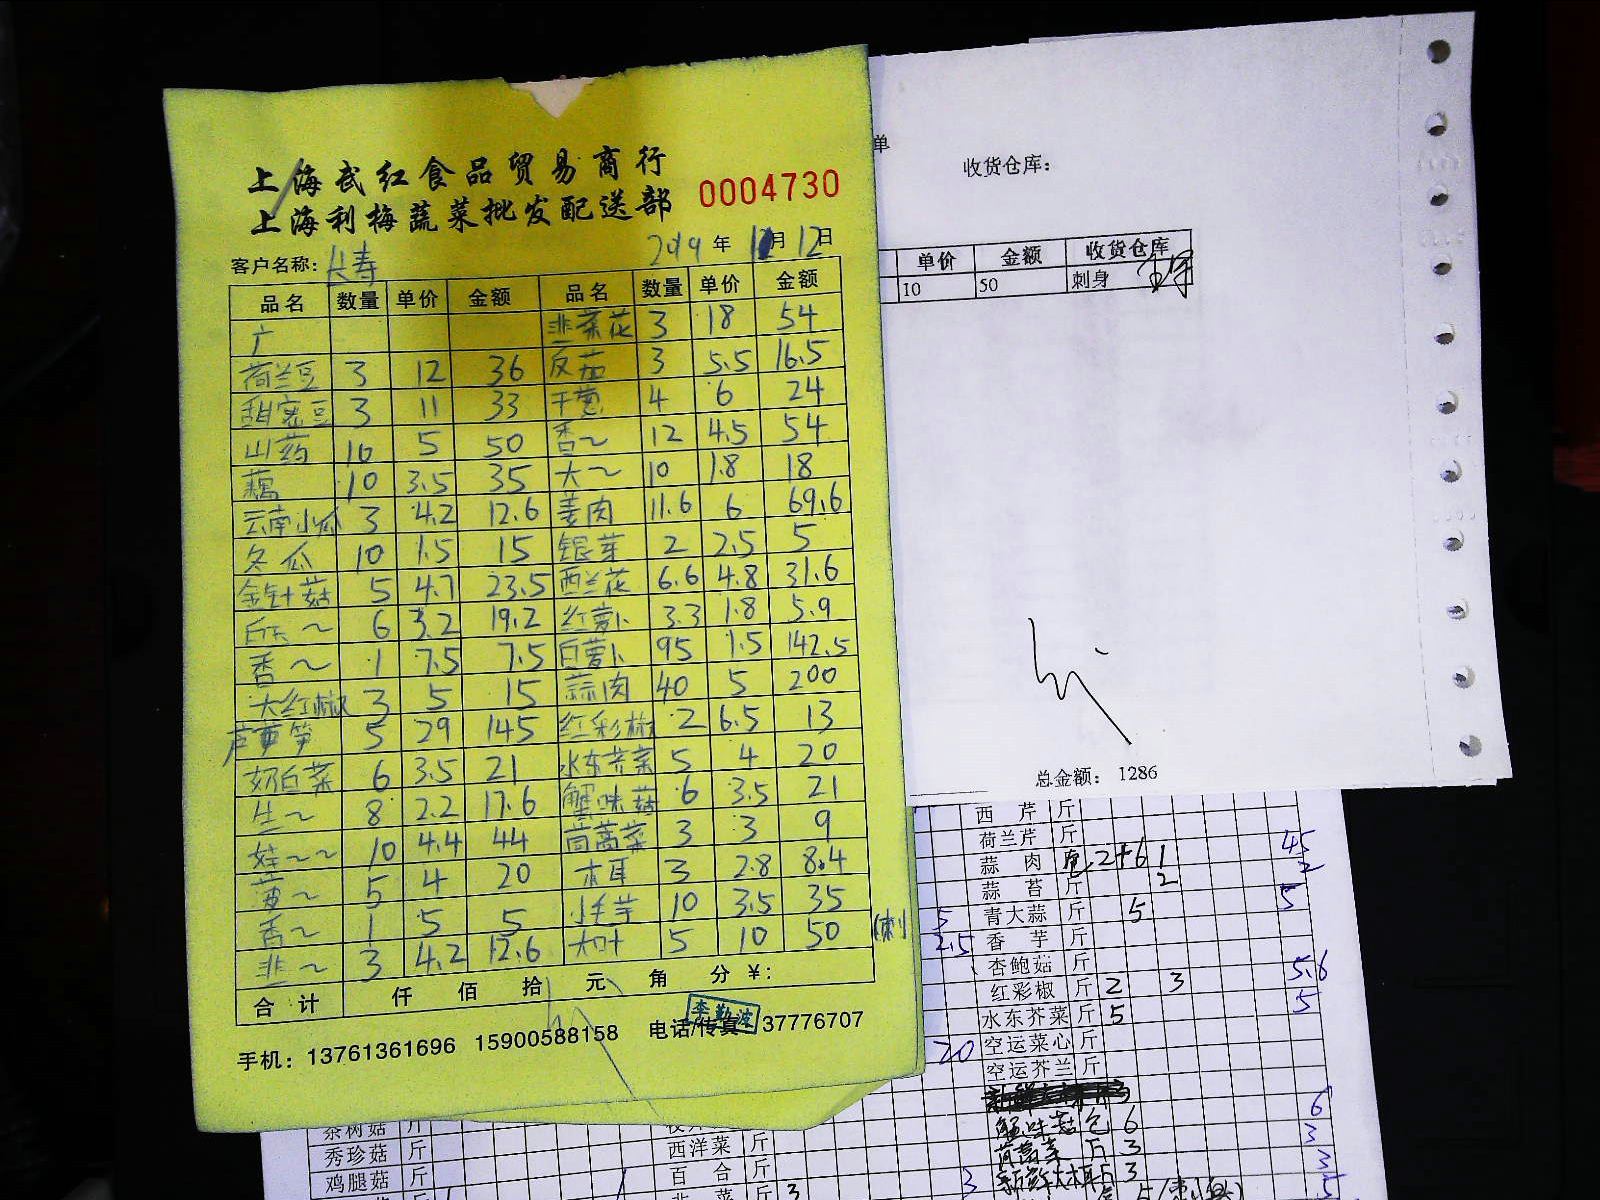 上海武红食品贸易商行
上海利梅蔬菜批发配送部 0004730
客户名称: 长寿 2019 年 12 月 12 日
品名 数量 单价 金额 品名 数量 单价 金额
广 韭菜花 3 18 54
荷兰豆 3 12 36 反茄 3 5.5 16.5
甜蜜豆 3 11 33 干葱 4 6 24
山药 10 5 50 香~ 12 4.5 54
藕 10 3.5 35 大~ 10 1.8 18
云南小瓜 3 4.2 12.6 姜肉 11.6 6 69.6
冬瓜 10 1.5 15 银芽 2 2.5 5
金针菇 5 4.7 23.5 西兰花 6.6 4.8 31.6
白玉~ 6 3.2 19.2 红萝卜 3.3 1.8 5.9
香~ 1 7.5 7.5 白萝卜 95 1.5 142.5
大红椒 3 5 15 蒜肉 40 5 200
芦荀笋 5 29 145 红彩椒 2 6.5 13
奶白菜 6 3.5 21 水东芥菜 5 4 20
生~ 8 2.2 17.6 蟹味菇 6 3.5 21
娃~~ 10 4.4 44 茼蒿菜 3 3 9
菠~ 5 4 20 木耳 3 2.8 8.4
香~ 1 5 5 小毛芋 10 3.5 35
韭~ 3 4.2 12.6 大叶 5 10 50 (刺
合计 仟 佰 拾 元 角 分 ¥:
李勤波
手机: 13761361696 15900588158 电话/传真 37776707
单
收货仓库:
单价 金额 收货仓库
10 50 刺身
总金额: 1286
西芹 斤
荷兰芹 斤 45
蒜肉 包 2+6 1 2
蒜苔 斤 2
5 青大蒜 斤 5 5
2.5 香芋 斤
杏鲍菇 斤 5.6
红彩椒 斤 2 3 5
水东芥菜 斤 5
20 空运菜心 斤
空运芥兰 斤
蟹味菇 包 6 6
茼蒿菜 斤 3 3
3 新鲜木耳 斤 3 3
茶树菇 斤
秀珍菇 斤 西洋菜 斤
鸡腿菇 斤 百合 斤
韭菜 斤 3